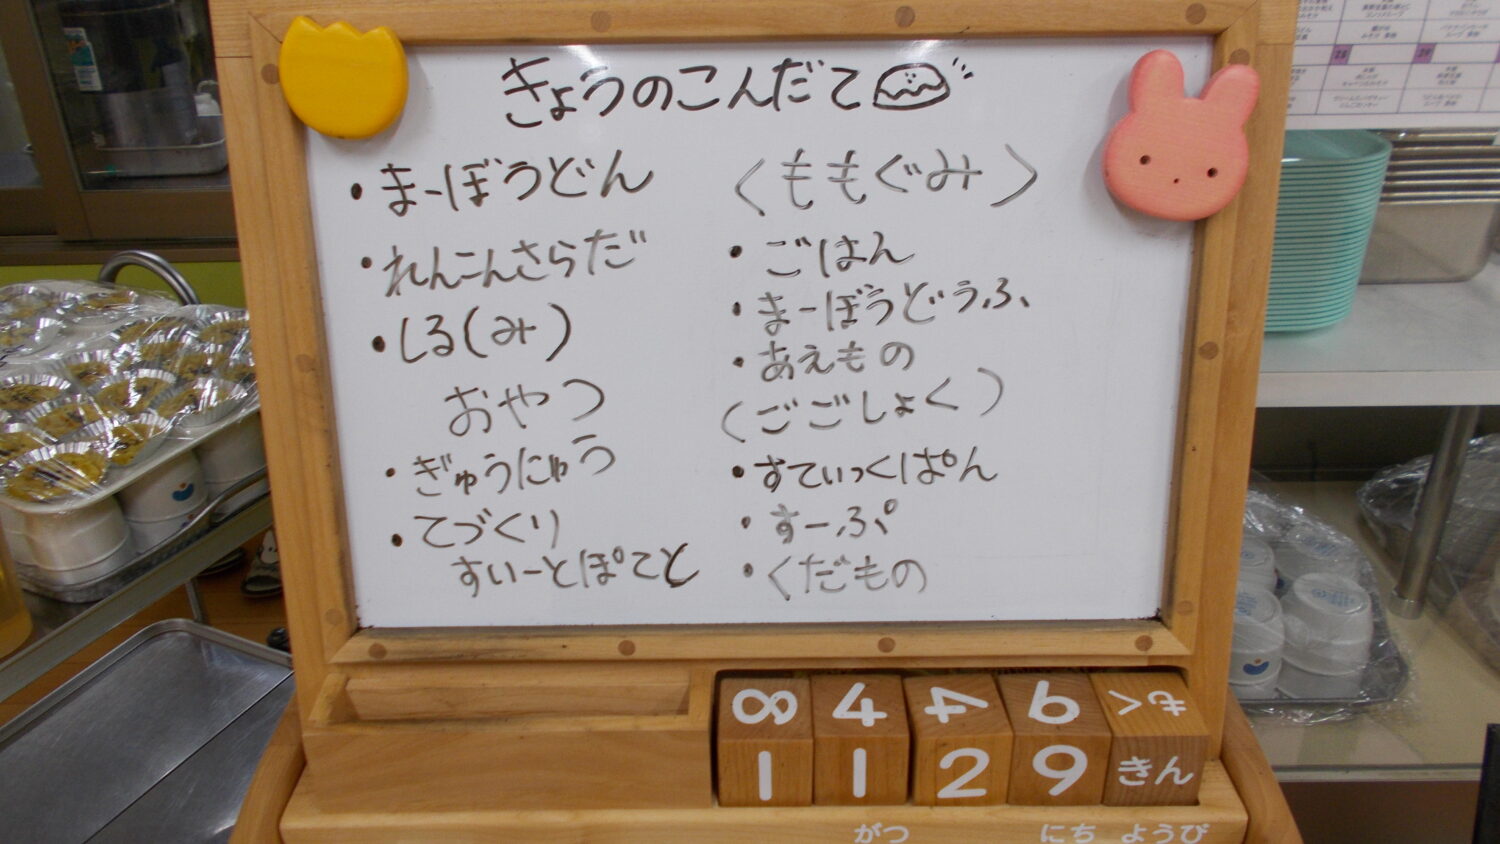 きょうのこんだて
・まーぼうどん
・れんこんさらだ
・しる(み)
おやつ
・ぎゅうにゅう
・てづくり
すいーとぽてと
〈ももぐみ〉
・ごはん
・まーぼうどうふ
・あえもの
(ごごしょく)
・すてぃっくぱん
・すーぷ
・くだもの
8 4 4 6 もく
1 1 2 9 きん
がつ にち ようび